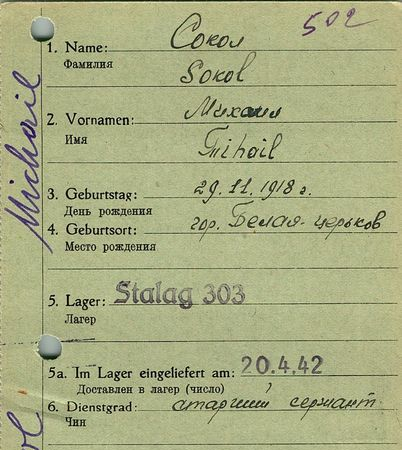 502
1. Name: Сокол
Фамилия
Sokol
2. Vornamen: Михаил
Имя
Mihail
3. Geburtstag: 29.11.1918 г.
День рождения
4. Geburtsort: гор. Белая-церьков
Место рождения
5. Lager: Stalag 303
Лагер
5a. Im Lager eingeliefert am: 20.4.42
Доставлен в лагер (число)
6. Dienstgrad: старший сержант
Чин
Michail